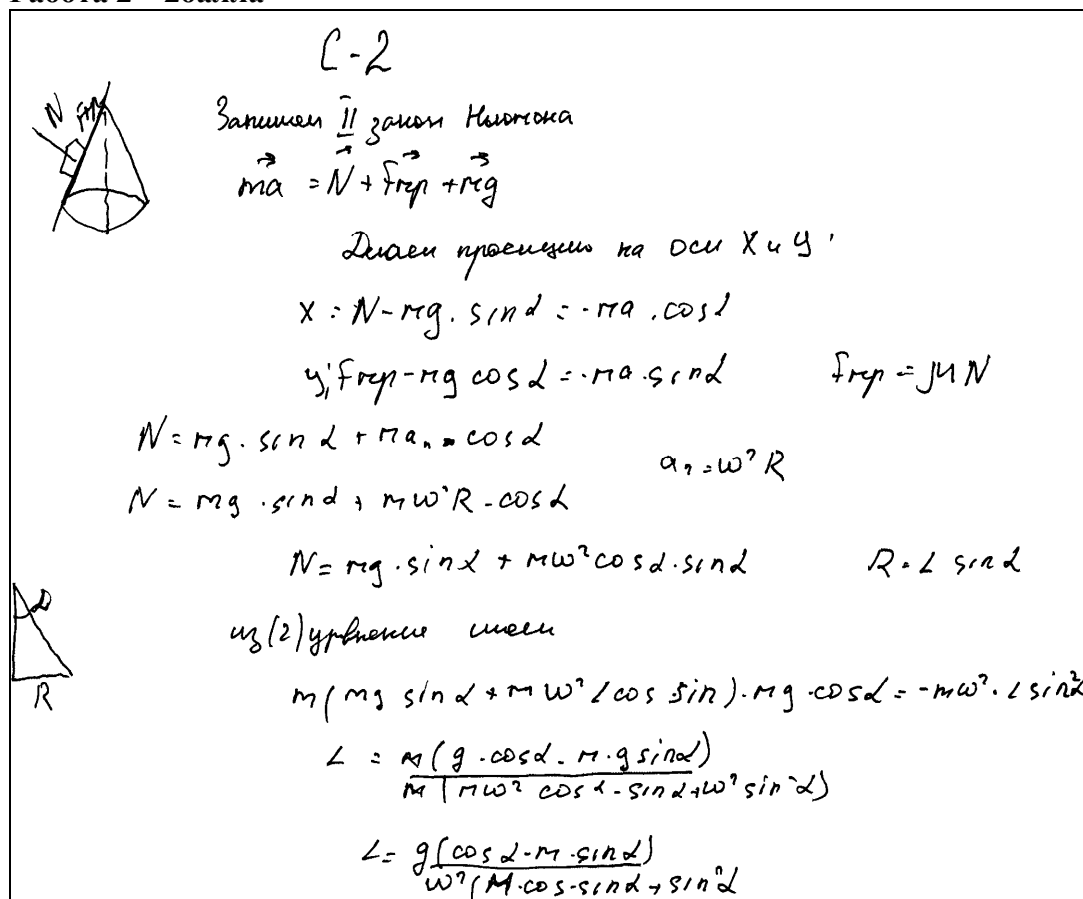 Работа 2 – 2балла
C-2
N Fтр
Запишем II закон Ньютона
ma = N + Fтр + mg
Делаем проекцию на оси X и Y
X: N - mg · sin α = -ma · cos α
y: Fтр - mg cos α = -ma · sin α Fтр = μN
N = mg · sin α + maₙ · cos α
aₙ = ω² R
N = mg · sin α + mω²R · cos α
N = mg · sin α + mω² cos α · sin α R = L sin α
α
R
из (2) уравнение имеем
μ(mg sin α + mω² L cos sin) · mg · cos α = -mω² · L sin² α
L = m(g · cos α - μ · g sin α) / m(μω² cos α · sin α + ω² sin² α)
L = g(cos α - μ · sin α) / ω²(μ · cos · sin α + sin² α